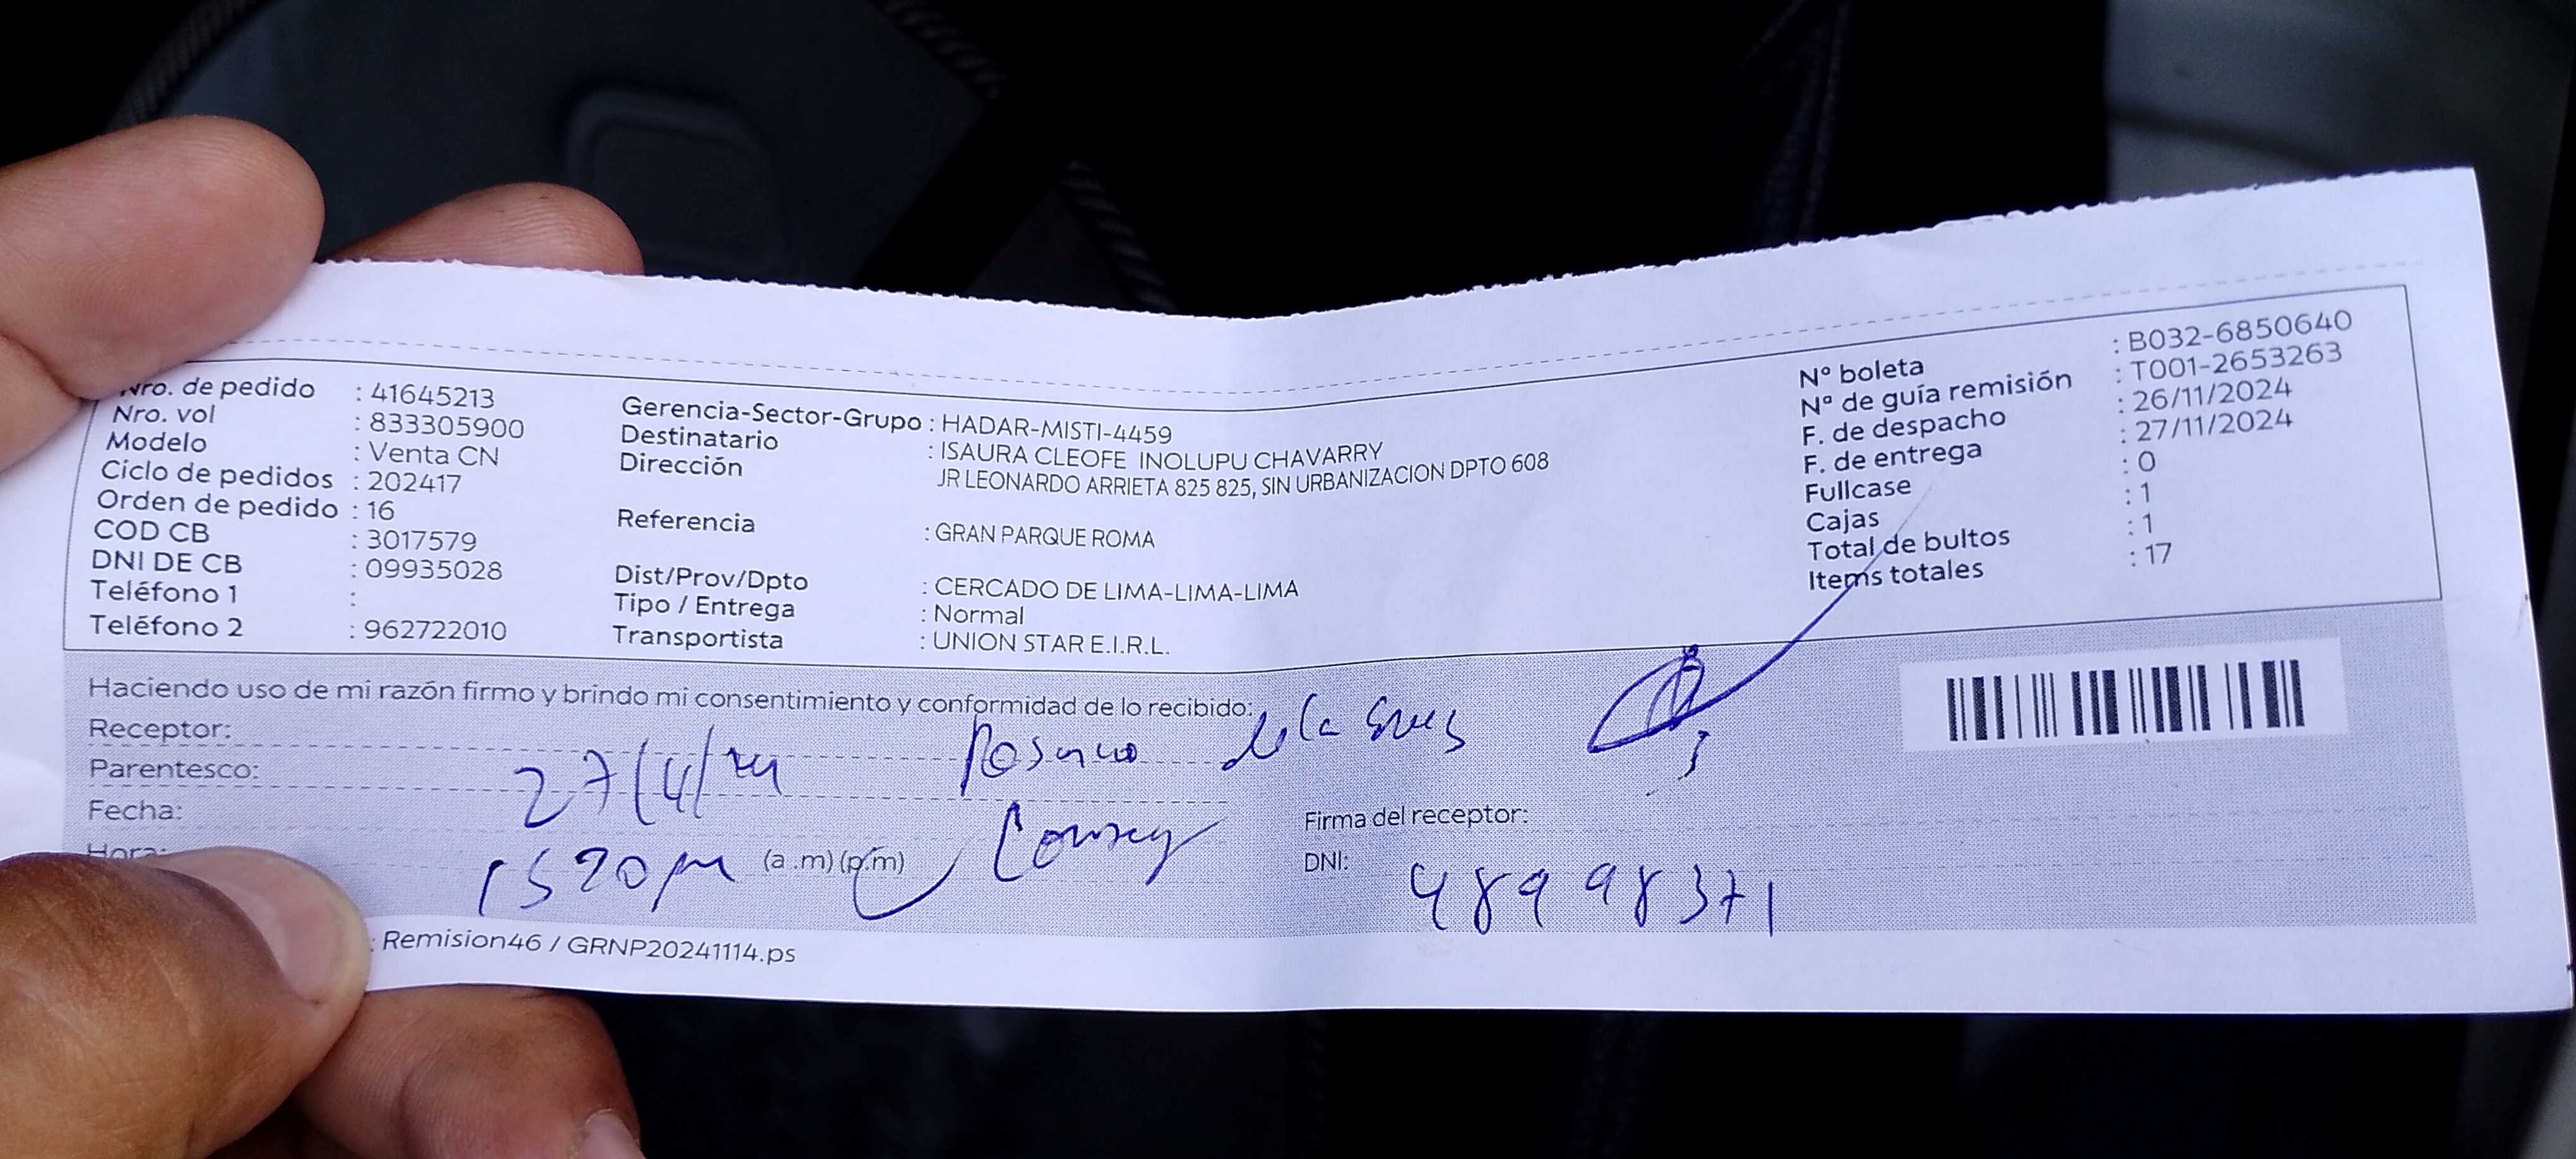 Nro. de pedido : 41645213
Nro. vol : 833305900
Modelo : Venta CN
Ciclo de pedidos : 202417
Orden de pedido : 16
COD CB : 3017579
DNI DE CB : 09935028
Teléfono 1 :
Teléfono 2 : 962722010
Gerencia-Sector-Grupo : HADAR-MISTI-4459
Destinatario : ISAURA CLEOFE INOLUPU CHAVARRY
Dirección JR LEONARDO ARRIETA 825 825, SIN URBANIZACION DPTO 608
Referencia : GRAN PARQUE ROMA
Dist/Prov/Dpto : CERCADO DE LIMA-LIMA-LIMA
Tipo / Entrega : Normal
Transportista : UNION STAR E.I.R.L.
Nº boleta : B032-6850640
Nª de guía remisión : T001-2653263
F. de despacho : 26/11/2024
F. de entrega : 27/11/2024
Fullcase : 0
Cajas : 1
Total de bultos : 1
Items totales : 17
Haciendo uso de mi razón firmo y brindo mi consentimiento y conformidad de lo recibido:
Receptor: de la
Parentesco:
Fecha:
Hora: (a .m) (p.m)
Firma del receptor:
DNI: 48998371
: Remision46 / GRNP20241114.ps